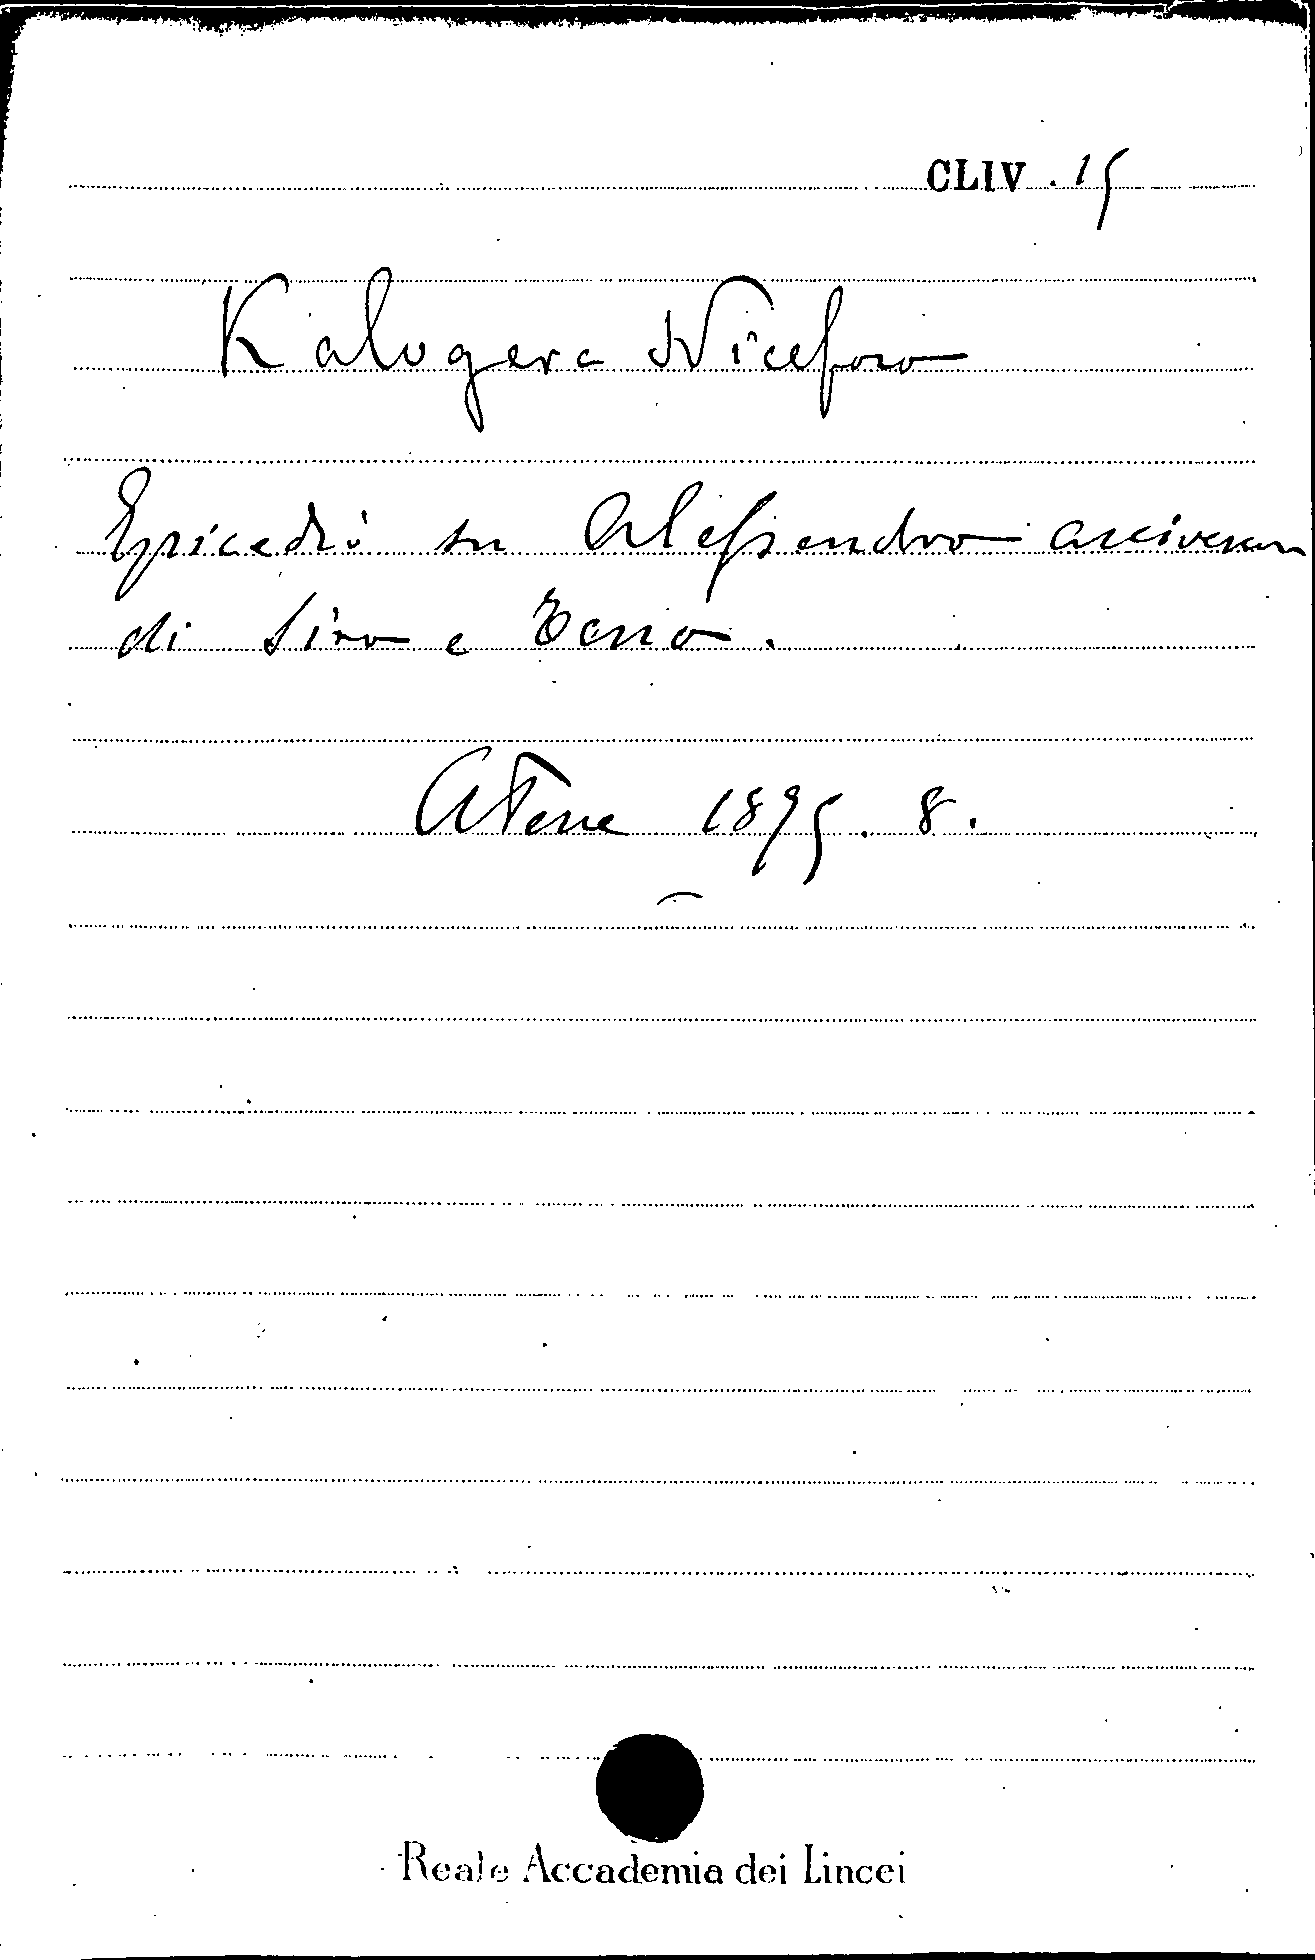 CLIV . 15
Kalogera Niceforo
Epicedio su Alessandro arcivescov
di Siro e Teno.
Atene 1895. 8.
Reale Accademia dei Lincei